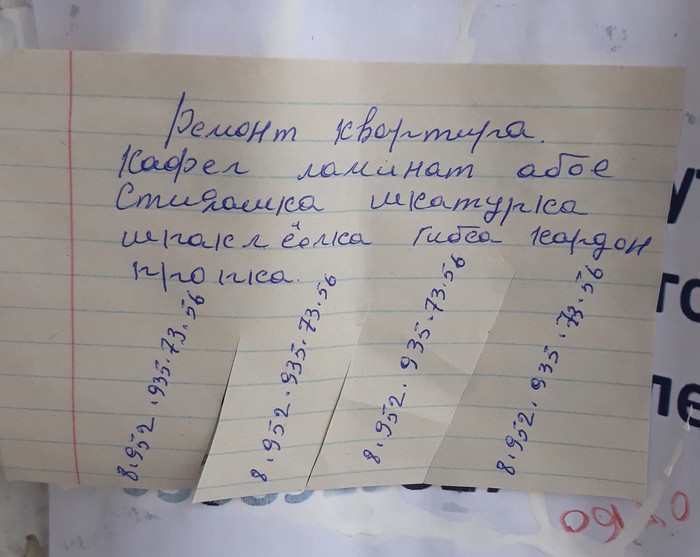 Ремонт квортира.
Кафел ломинат абое
Стидомка шкатурка
шпаклёолка гибса кардон
прошка.
8.952.935.73.56
8.952.935.73.56
8.952.935.73.56
8.952.935.73.56